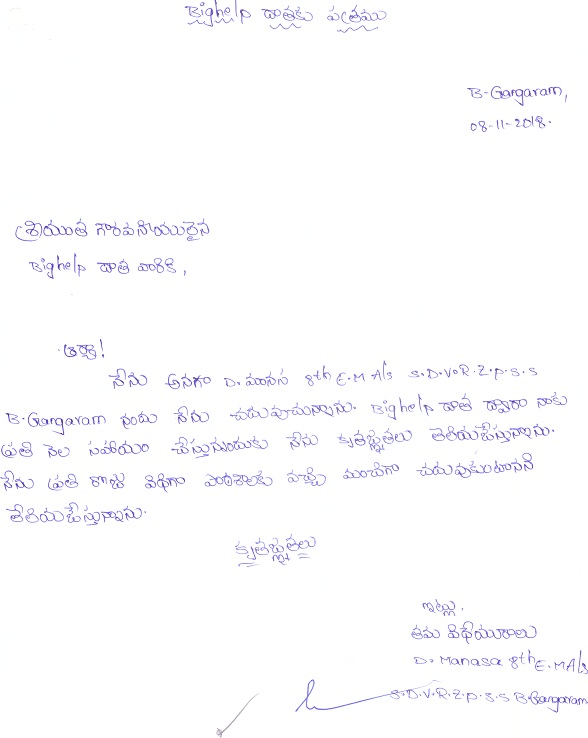 Bighelp దాతకు పత్రము
B-Gangaram,
08-11-2018.
శ్రీయుత గౌరవనీయురైన
Bighelp దాత వారికి,
ఆర్యా!
నేను అనగా D. మానస 8th E.M A/s S.D.V.R.Z.P.S.S
B-Gangaram నందు నేను చదువుచున్నాను. Bighelp దాత ద్వారా నాకు
ప్రతి నెల సహాయం చేస్తున్నందుకు నేను కృతజ్ఞతలు తెలియజేస్తున్నాను.
నేను ప్రతి రోజు విధిగా పాఠశాలకు వచ్చి మంచిగా చదువుకుంటానని
తెలియజేస్తున్నాను.
కృతజ్ఞతలు
ఇట్లు,
తమ విధేయురాలు
D. Manasa 8th E.M A/s
S.D.V.R.Z.P.S.S B.Gangaram